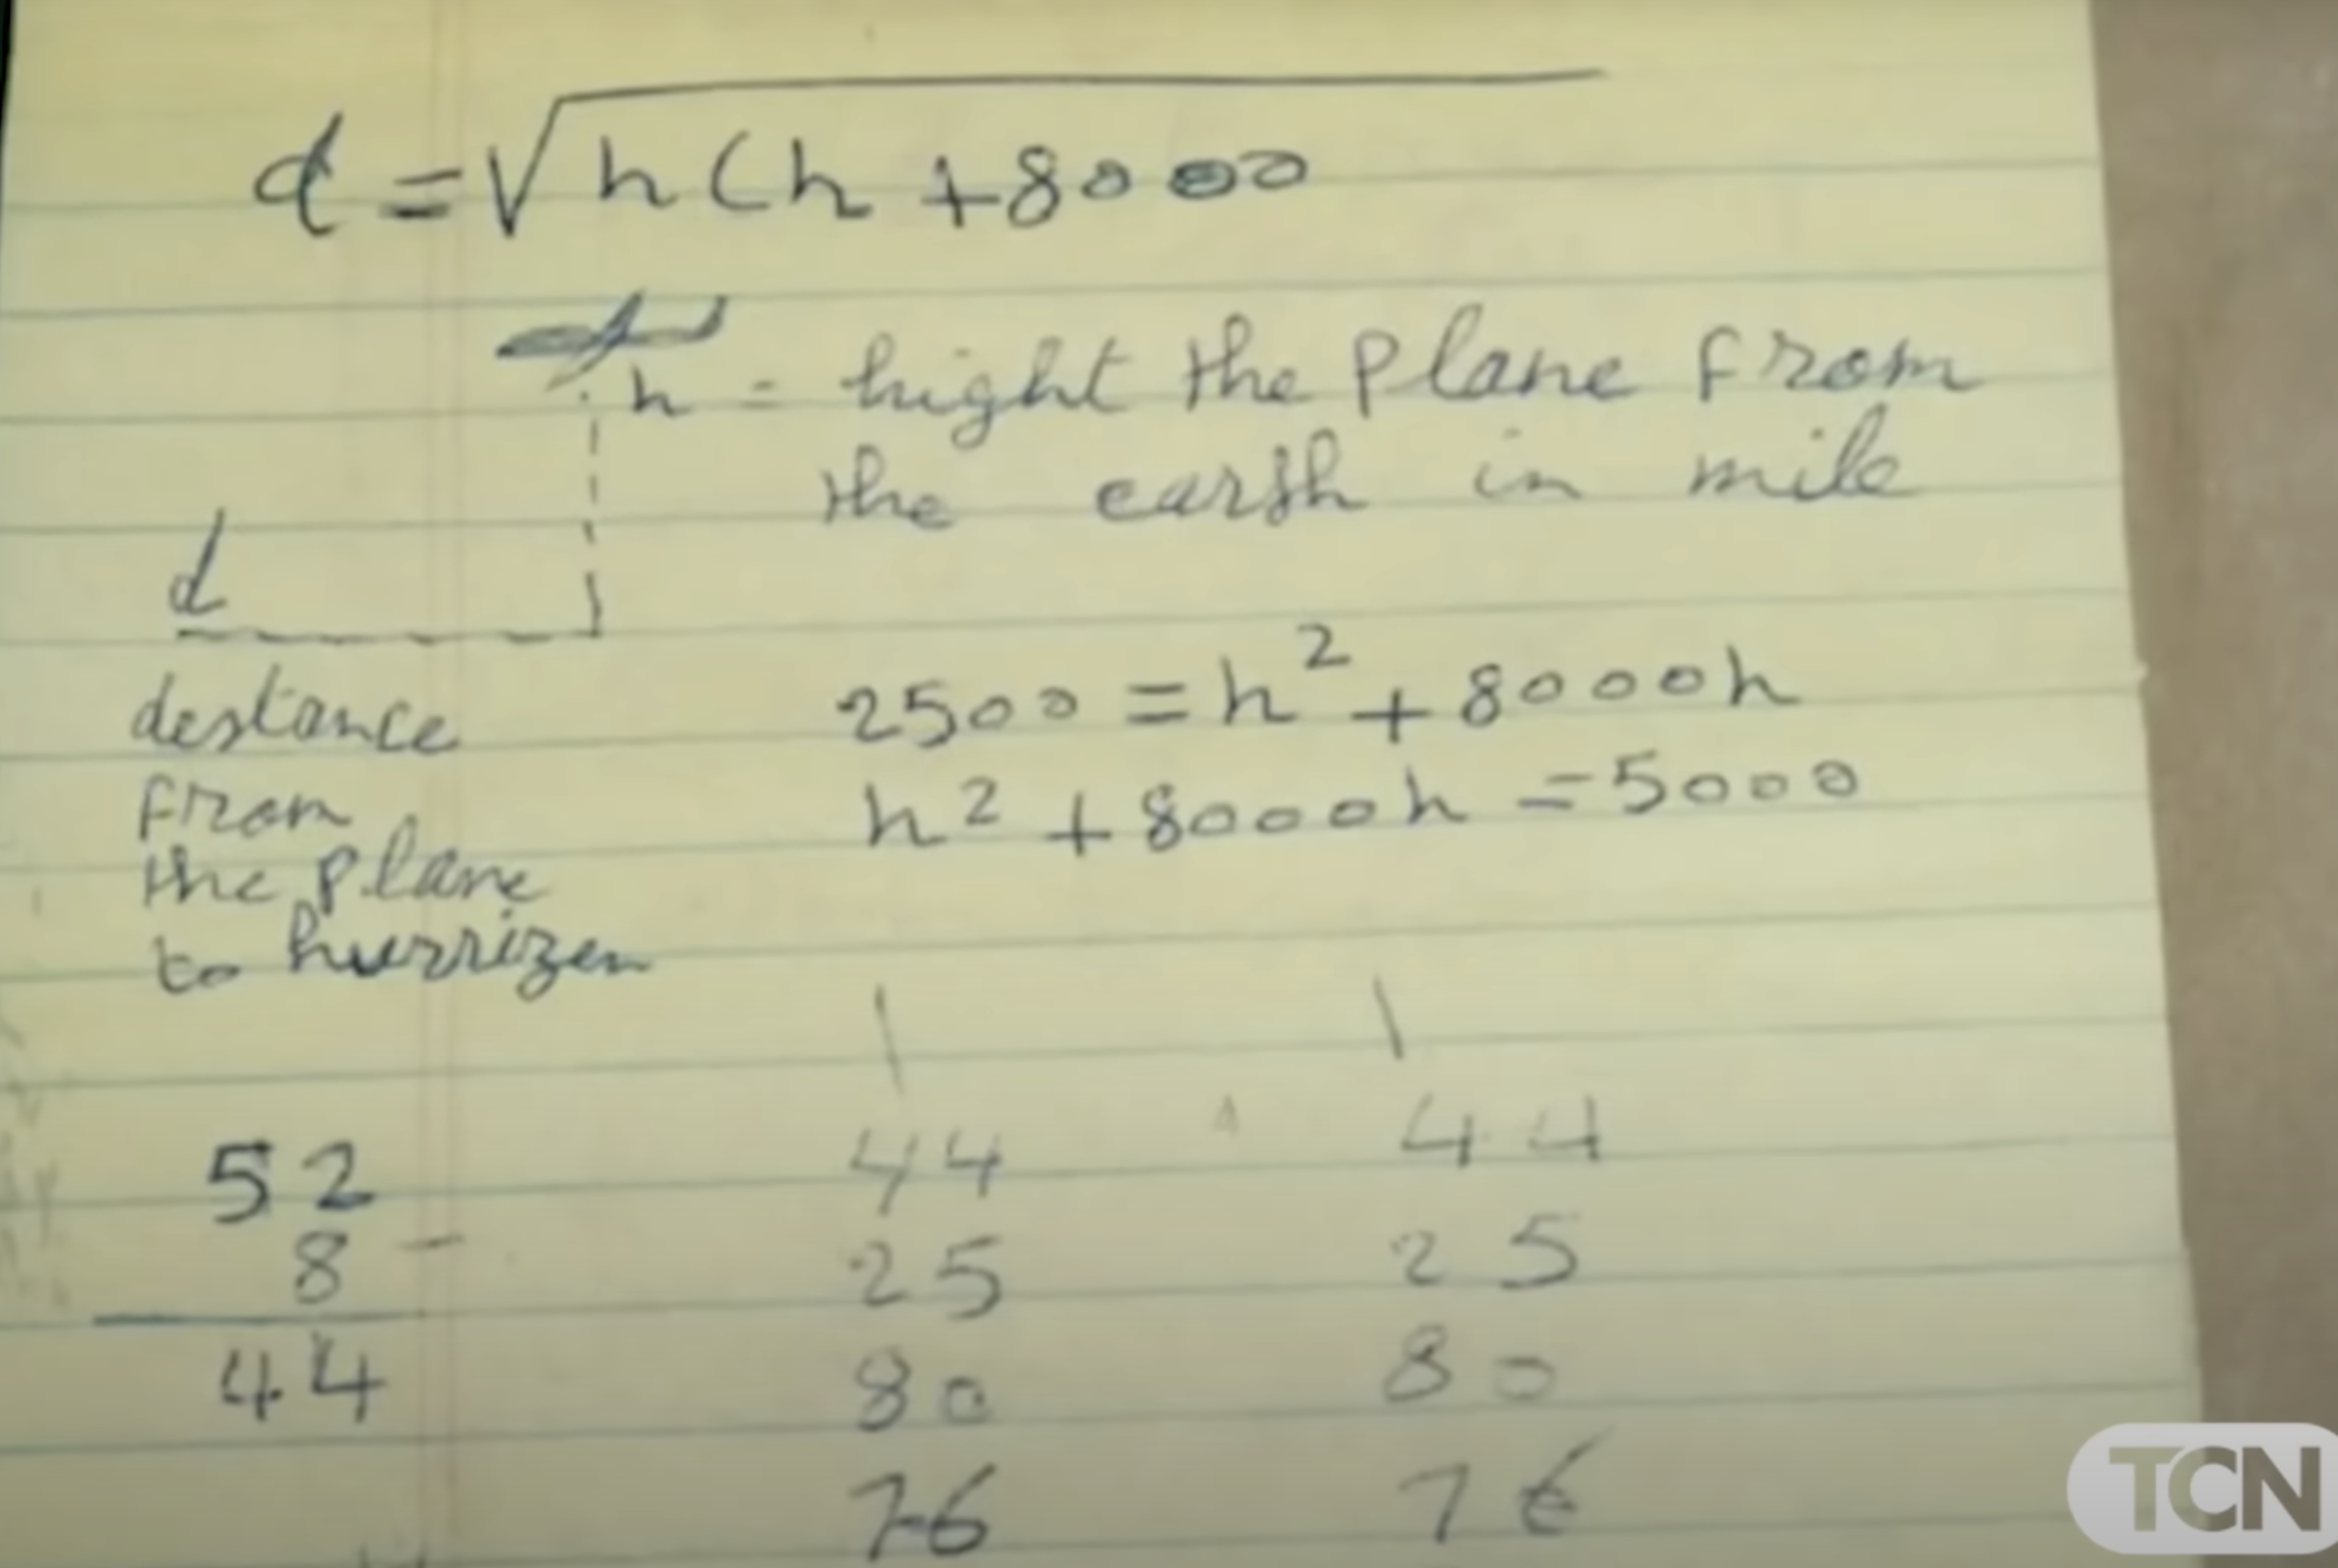 d = √h(h + 8000
h = hight the plane from
the earth in mile
d
destance
from
the plane
to hurrizen
2500 = h² + 8000h
h² + 8000h = 5000
52
8 -
44
44
25
80
76
44
25
80
76
TCN